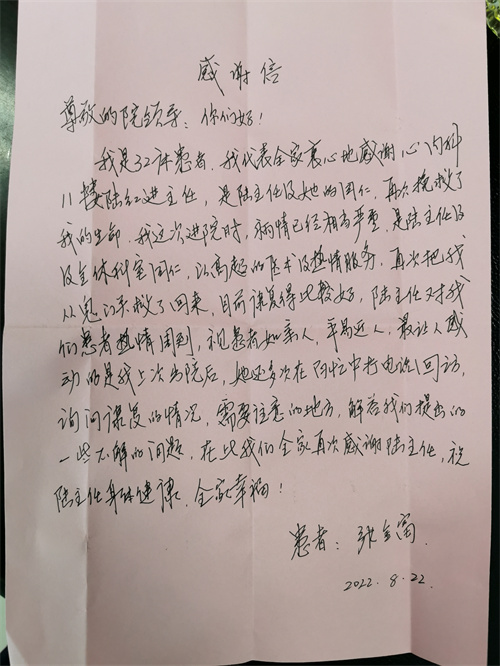 感谢信
尊敬的院领导：你们好！
我是32床患者，我代表全家衷心地感谢心内科
11楼陆红进主任，是陆主任及她的同仁，再次挽救了
我的生命，我这次进院时，病情已经相当严重，是陆主任及
及全体科室同仁，以高超的医术及热情服务，再次把我
从鬼门关救了回来，目前康复得比较好，陆主任对我
们患者热情周到，视患者如亲人，平易近人，最让人感
动的是我上次出院后，她还多次在百忙中打电话回访，
询问康复的情况，需要注意的地方，解答我们提出的
一些不解的问题，在此我们全家再次感谢陆主任，祝
陆主任身体健康，全家幸福！
患者：张富
2022.8.22.